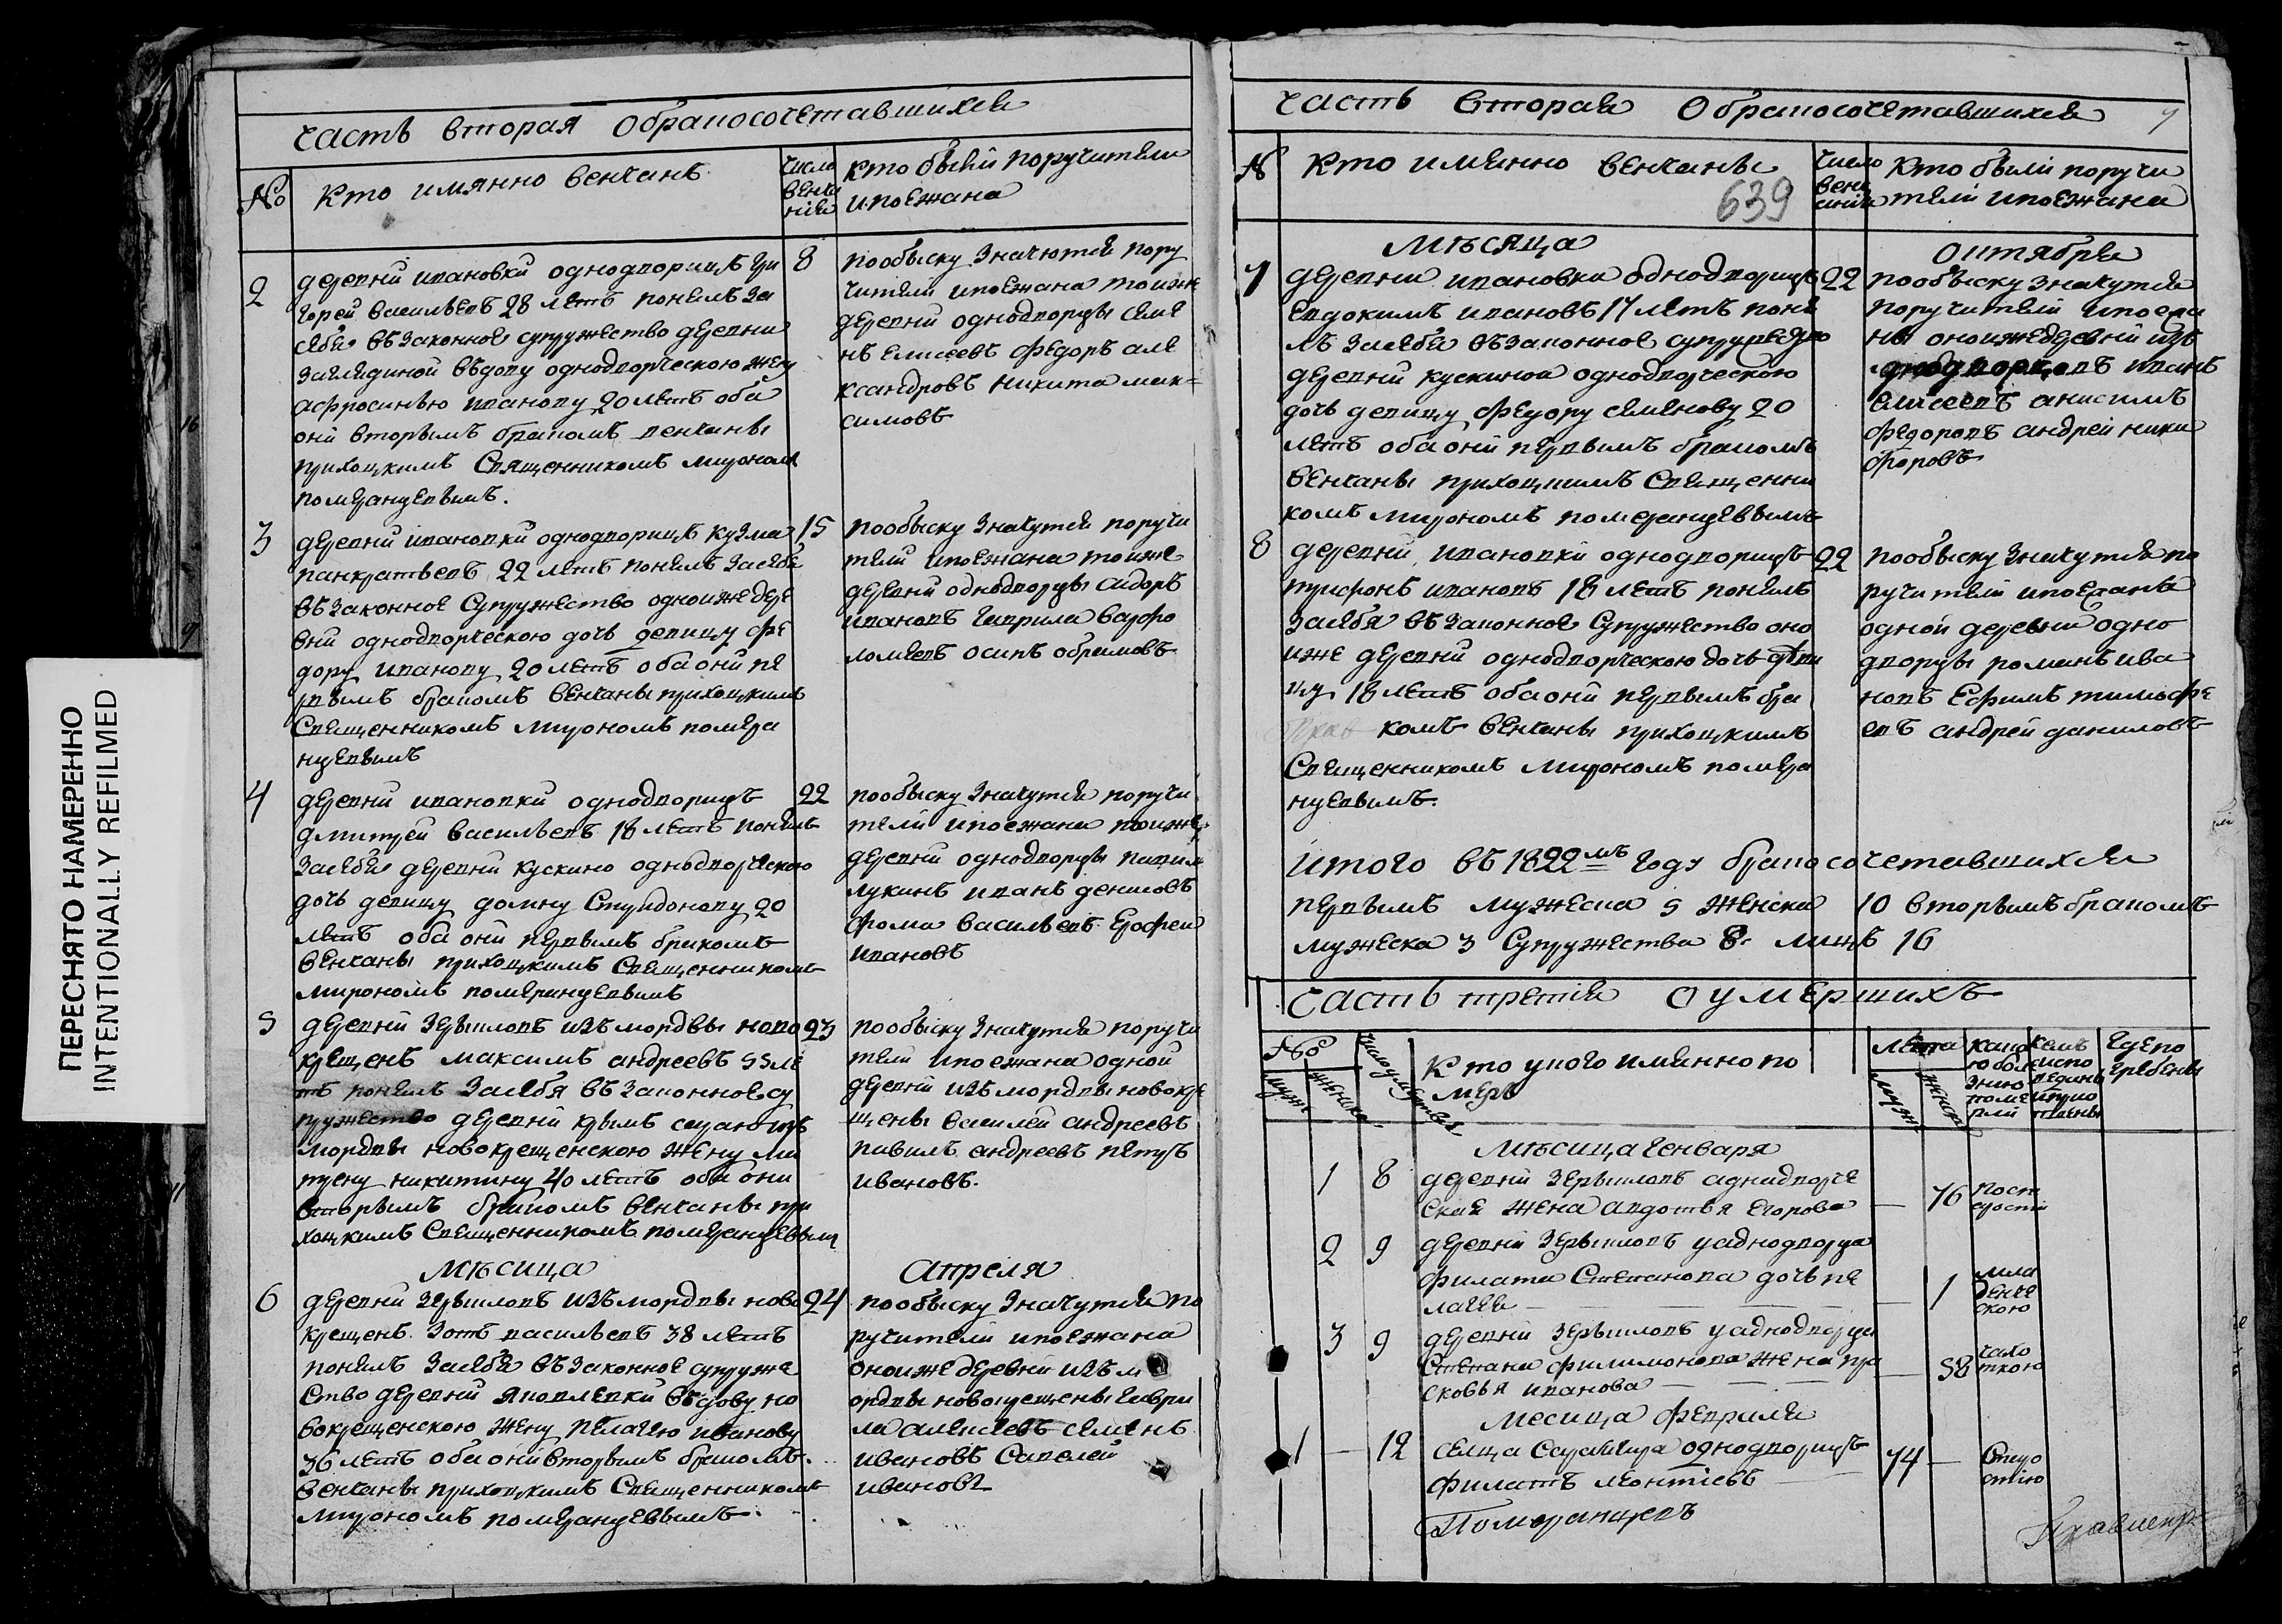 ПЕРЕСНЯТО НАМЕРЕННО
INTENTIONALLY REFILMED
часть вторая О бракосочетавшихся
№
кто имянно венчанъ
число венча нія
кто были поручители
ипоезжана
2
деревни ивановки однодворицъ гри
8
горей васильевъ 28 летъ понелъ за
себя въ законное супружество деревни
вьдову однодворческою жену
афросинью иванову 20 летъ оба
они вторымъ бракомъ венчаны
приходцкимъ Священникомъ мирономъ
померанцевымъ.
пообыску значютея пору
чители ипоезжана тоиже
деревни однодворцы семе
нъ елисеевъ федоръ але
ксандровъ никита мак=
симовъ
3
деревни ивановки однодворицъ кузма
15
панкратьевъ 22 летъ понелъ засебя
въ законное Супружество одноиже дере
вни однодворческою дочь девицу фе
дору иванову 20 летъ оба они пе
рвымъ бракомъ венчаны приходцкимъ
Священникомъ мирономъ помера
нцевымъ
пообыску значутся поручи
тели ипоезжана тоиже
деревни однодворцы сидоръ
ивановъ гаврила варфо
ломеевъ осипъ обрамовъ
4
деревни ивановки однодворицъ
22
дмитрей васильевъ 18 летъ понелъ
засебя деревни кускино однодворческою
дочь девицу домну Спиридонову 20
летъ оба они первымъ бракомъ
венчаны приходцкимъ Священникомъ
мирономъ померанцевымъ
пообыску значутся поручи
тели ипоезжана тоиже
деревни однодворцы
лукинъ иванъ денисовъ
фома васильевъ Ерофеи
ивановъ
5
деревни изъ мордвы ново
23
крещенъ максимъ андреевъ 55 ле
тъ понелъ засебя въ законное су
пружество деревни изъ
мордвы новокрещенскою жену ма
трену никитину 40 летъ оба они
вторымъ бракомъ венчаны при
ходцкимъ Священникомъ померанцевымъ
пообыску значутся поручи
тели ипоезжана одной
деревни изъ мордвы новокре
щены василей андреевъ
павилъ андреевъ петръ
ивановъ.
мѣсяца апреля
6
деревни изъ мордвы ново
24
крещенъ Зотъ васильевъ 38 летъ
понелъ засебя въ законное супруже
ство деревни яковлевки вьдову но
вокрещенскою жену пелагею иванову
36 летъ оба они вторымъ бракомъ.
венчаны приходцкимъ Священникомъ
мирономъ померанцеввымъ.
пообыску значутся по
ручители ипоезжана
оноиже деревни изъ м
ордвы новокрещены гаври
ла алексеевъ семенъ
ивановъ Савелей
ивановъ
часть вторая О бракосочетавшихся
№
кто имянно венчаны
639
число венч анія
кто были поручи
тели ипоезжана
мѣсяца октября
7
деревни ивановка однодворицъ
22
евдокимъ ивановъ 17 летъ поне
лъ засебя въ законное супружество
деревни кускиной однодворческою
дочь девицу федору семенову 20
летъ оба они первымъ бракомъ
венчаны приходцкимъ Священни
комъ мирономъ померанцеввымъ
пообыску значутся
поручители ипоезжа
ны оноижедеревни изъ
однодворцовъ иванъ
елисеевъ анисимъ
федоровъ андрей ники
форовъ
8
деревни ивановки однодворицъ
22
трифонъ ивановъ 18 летъ понелъ
засебя въ законное Супружество оно
иже деревни однодворческою дочь деви
цу 18 летъ оба они первымъ бра
комъ венчаны приходцкимъ
Священникомъ мирономъ помера
нцевымъ.
пообыску значутся по
ручители ипоезжаны
одной деревни одно
дворцы романъ ива
новъ Ефимъ тимофе
евъ андрей даниловъ
итого въ 1822мъ году бракосочетавшихся
первымъ мужеска 5 женска 10 вторымъ бракомъ
мужеска 3 Супружества 8. лицъ 16
часть третія О умершихъ
№
мужс
женска
число умертвія
кто укого имянно по
меръ
лета
мужс
женска
какою болезнию померли
кемъ исповеданы и приобщены
где погребены
мѣсяца генваря
1 8 деревни аднадворче
ская жена авдотья Егорова — 76 постарости
2 9 деревни уаднодворца
филата Степанова дочь пе
лагея — 1 младенческою
3 9 деревни уаднодворца
Степана филимонова жена пра
сковья иванова — 58 чахоткою
месяца февраля
1 — 12 селца однодворицъ
филатъ леонтіевъ 74 — Старостію
Померанцевъ